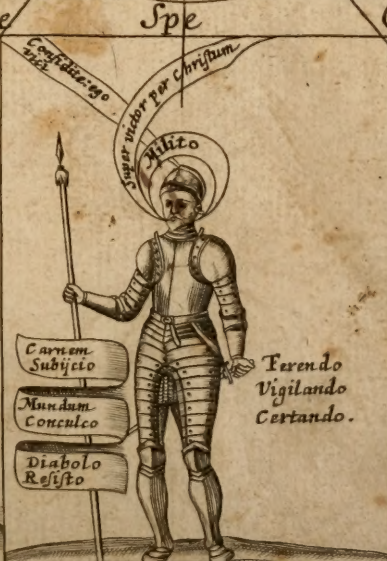 Spe
Confidite: ego
vici
Super victor per Christum
Milito
Carnem
Subijcio
Mundum
Conculco
Diabolo
Resisto
Ferendo
Vigilando
Certando.